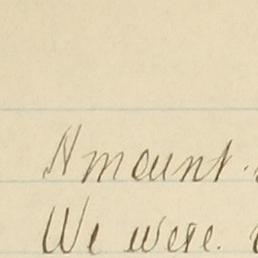 Amount.
We were.